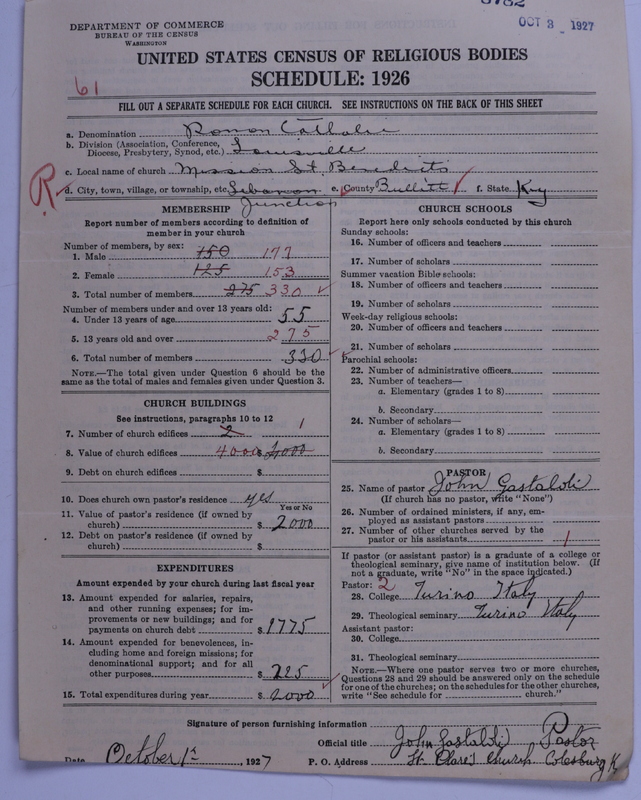 DEPARTMENT OF COMMERCE
BUREAU OF THE CENSUS
WASHINGTON
OCT 3 - 1927
UNITED STATES CENSUS OF RELIGIOUS BODIES
SCHEDULE: 1926
61
FILL OUT A SEPARATE SCHEDULE FOR EACH CHURCH. SEE INSTRUCTIONS ON THE BACK OF THIS SHEET
a. Denomination Roman Catholic
b. Division (Association, Conference, Diocese, Presbytery, Synod, etc.) Louisville
c. Local name of church Mission St. Benedicts
R.
d. City, town, village, or township, etc. Lebanon Junction e. County Bullitt f. State Ky
MEMBERSHIP
Report number of members according to definition of
member in your church
Number of members, by sex:
1. Male 150 177
2. Female 125 153
3. Total number of members 275 330
Number of members under and over 13 years old:
4. Under 13 years of age 55
5. 13 years old and over 275
6. Total number of members 330
NOTE.—The total given under Question 6 should be the
same as the total of males and females given under Question 3.
CHURCH BUILDINGS
See instructions, paragraphs 10 to 12
7. Number of church edifices 2 1
8. Value of church edifices 4000 $ 
9. Debt on church edifices $
10. Does church own pastor's residence yes
Yes or No
11. Value of pastor's residence (if owned by
church) $ 2000
12. Debt on pastor's residence (if owned by
church) $
EXPENDITURES
Amount expended by your church during last fiscal year
13. Amount expended for salaries, repairs,
and other running expenses; for im-
provements or new buildings; and for
payments on church debt $ 1775
14. Amount expended for benevolences, in-
cluding home and foreign missions; for
denominational support; and for all
other purposes $ 225
15. Total expenditures during year $ 2000
CHURCH SCHOOLS
Report here only schools conducted by this church
Sunday schools:
16. Number of officers and teachers
17. Number of scholars
Summer vacation Bible schools:
18. Number of officers and teachers
19. Number of scholars
Week-day religious schools:
20. Number of officers and teachers
21. Number of scholars
Parochial schools:
22. Number of administrative officers
23. Number of teachers—
a. Elementary (grades 1 to 8)
b. Secondary
24. Number of scholars—
a. Elementary (grades 1 to 8)
b. Secondary
PASTOR
25. Name of pastor John Gastaldi
(If church has no pastor, write "None")
26. Number of ordained ministers, if any, em-
ployed as assistant pastors
27. Number of other churches served by the
pastor or his assistants 1
If pastor (or assistant pastor) is a graduate of a college or
theological seminary, give name of institution below. (If
not a graduate, write "No" in the space indicated.)
Pastor: 2
28. College Turino Italy
29. Theological seminary Turino Italy
Assistant pastor:
30. College
31. Theological seminary
NOTE.—Where one pastor serves two or more churches,
Questions 28 and 29 should be answered only on the schedule
for one of the churches; on the schedules for the other churches,
write "See schedule for church."
Signature of person furnishing information
Official title John Gastaldi Pastor
Date October 1st, 1927 P. O. Address St. Clare's Church Colesburg Ky